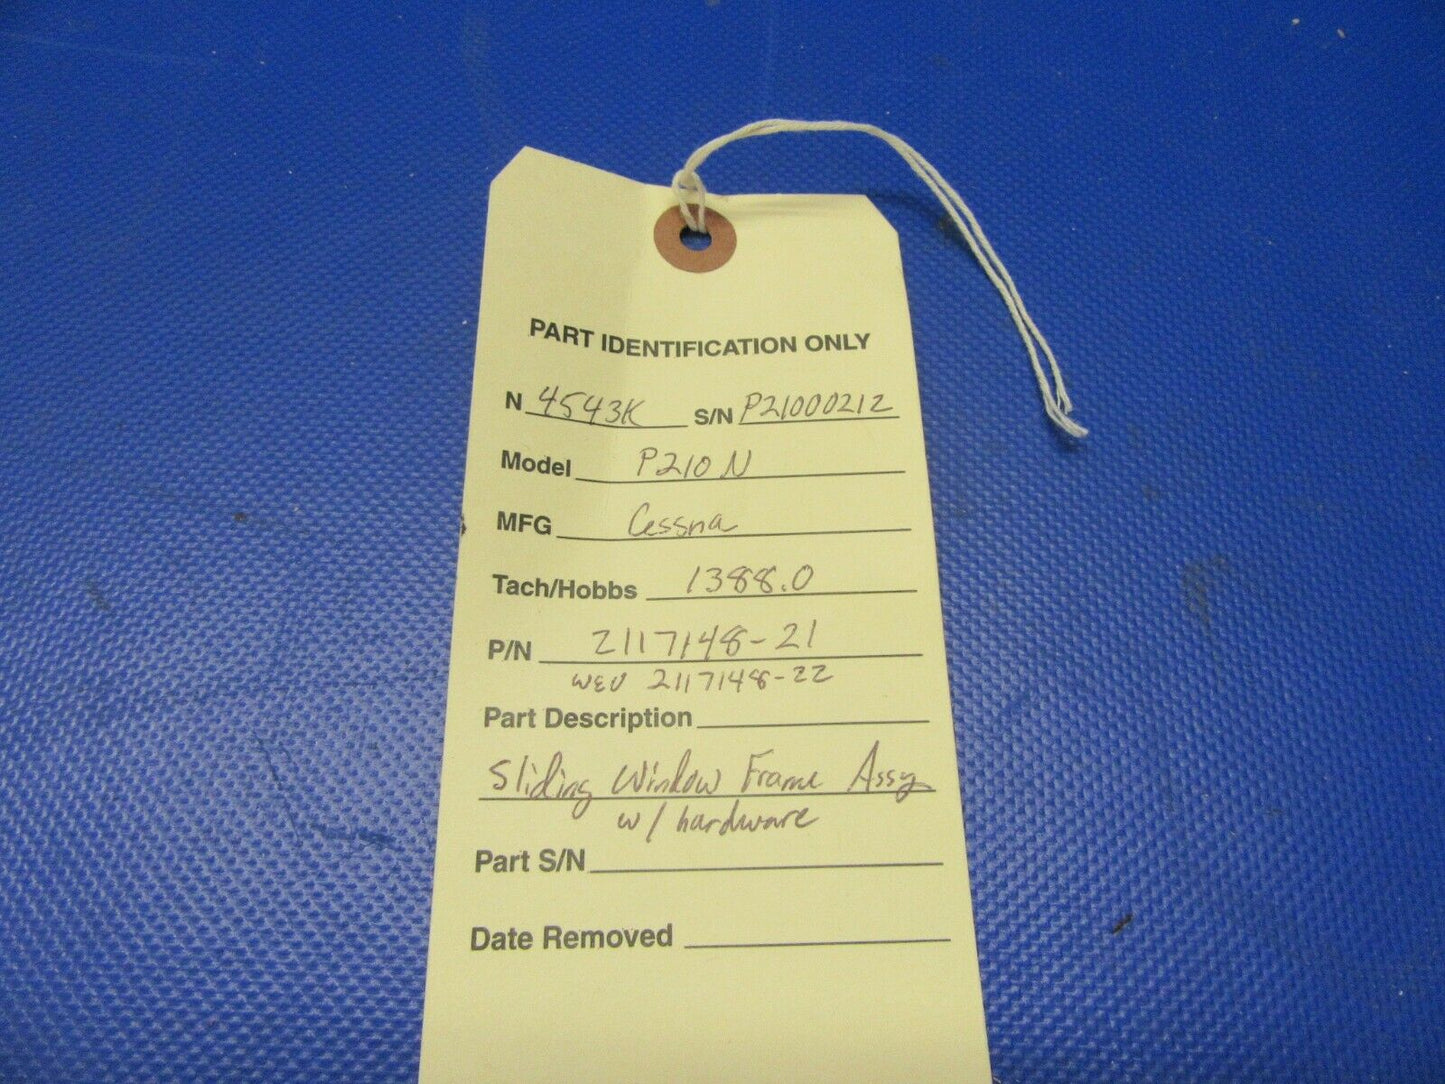 PART IDENTIFICATION ONLY
N 4543K S/N P21000212
Model P210N
MFG Cessna
Tach/Hobbs 1388.0
P/N 2117148-21
W&U 2117148-22
Part Description
Sliding Window Frame Assy
w/ hardware
Part S/N
Date Removed